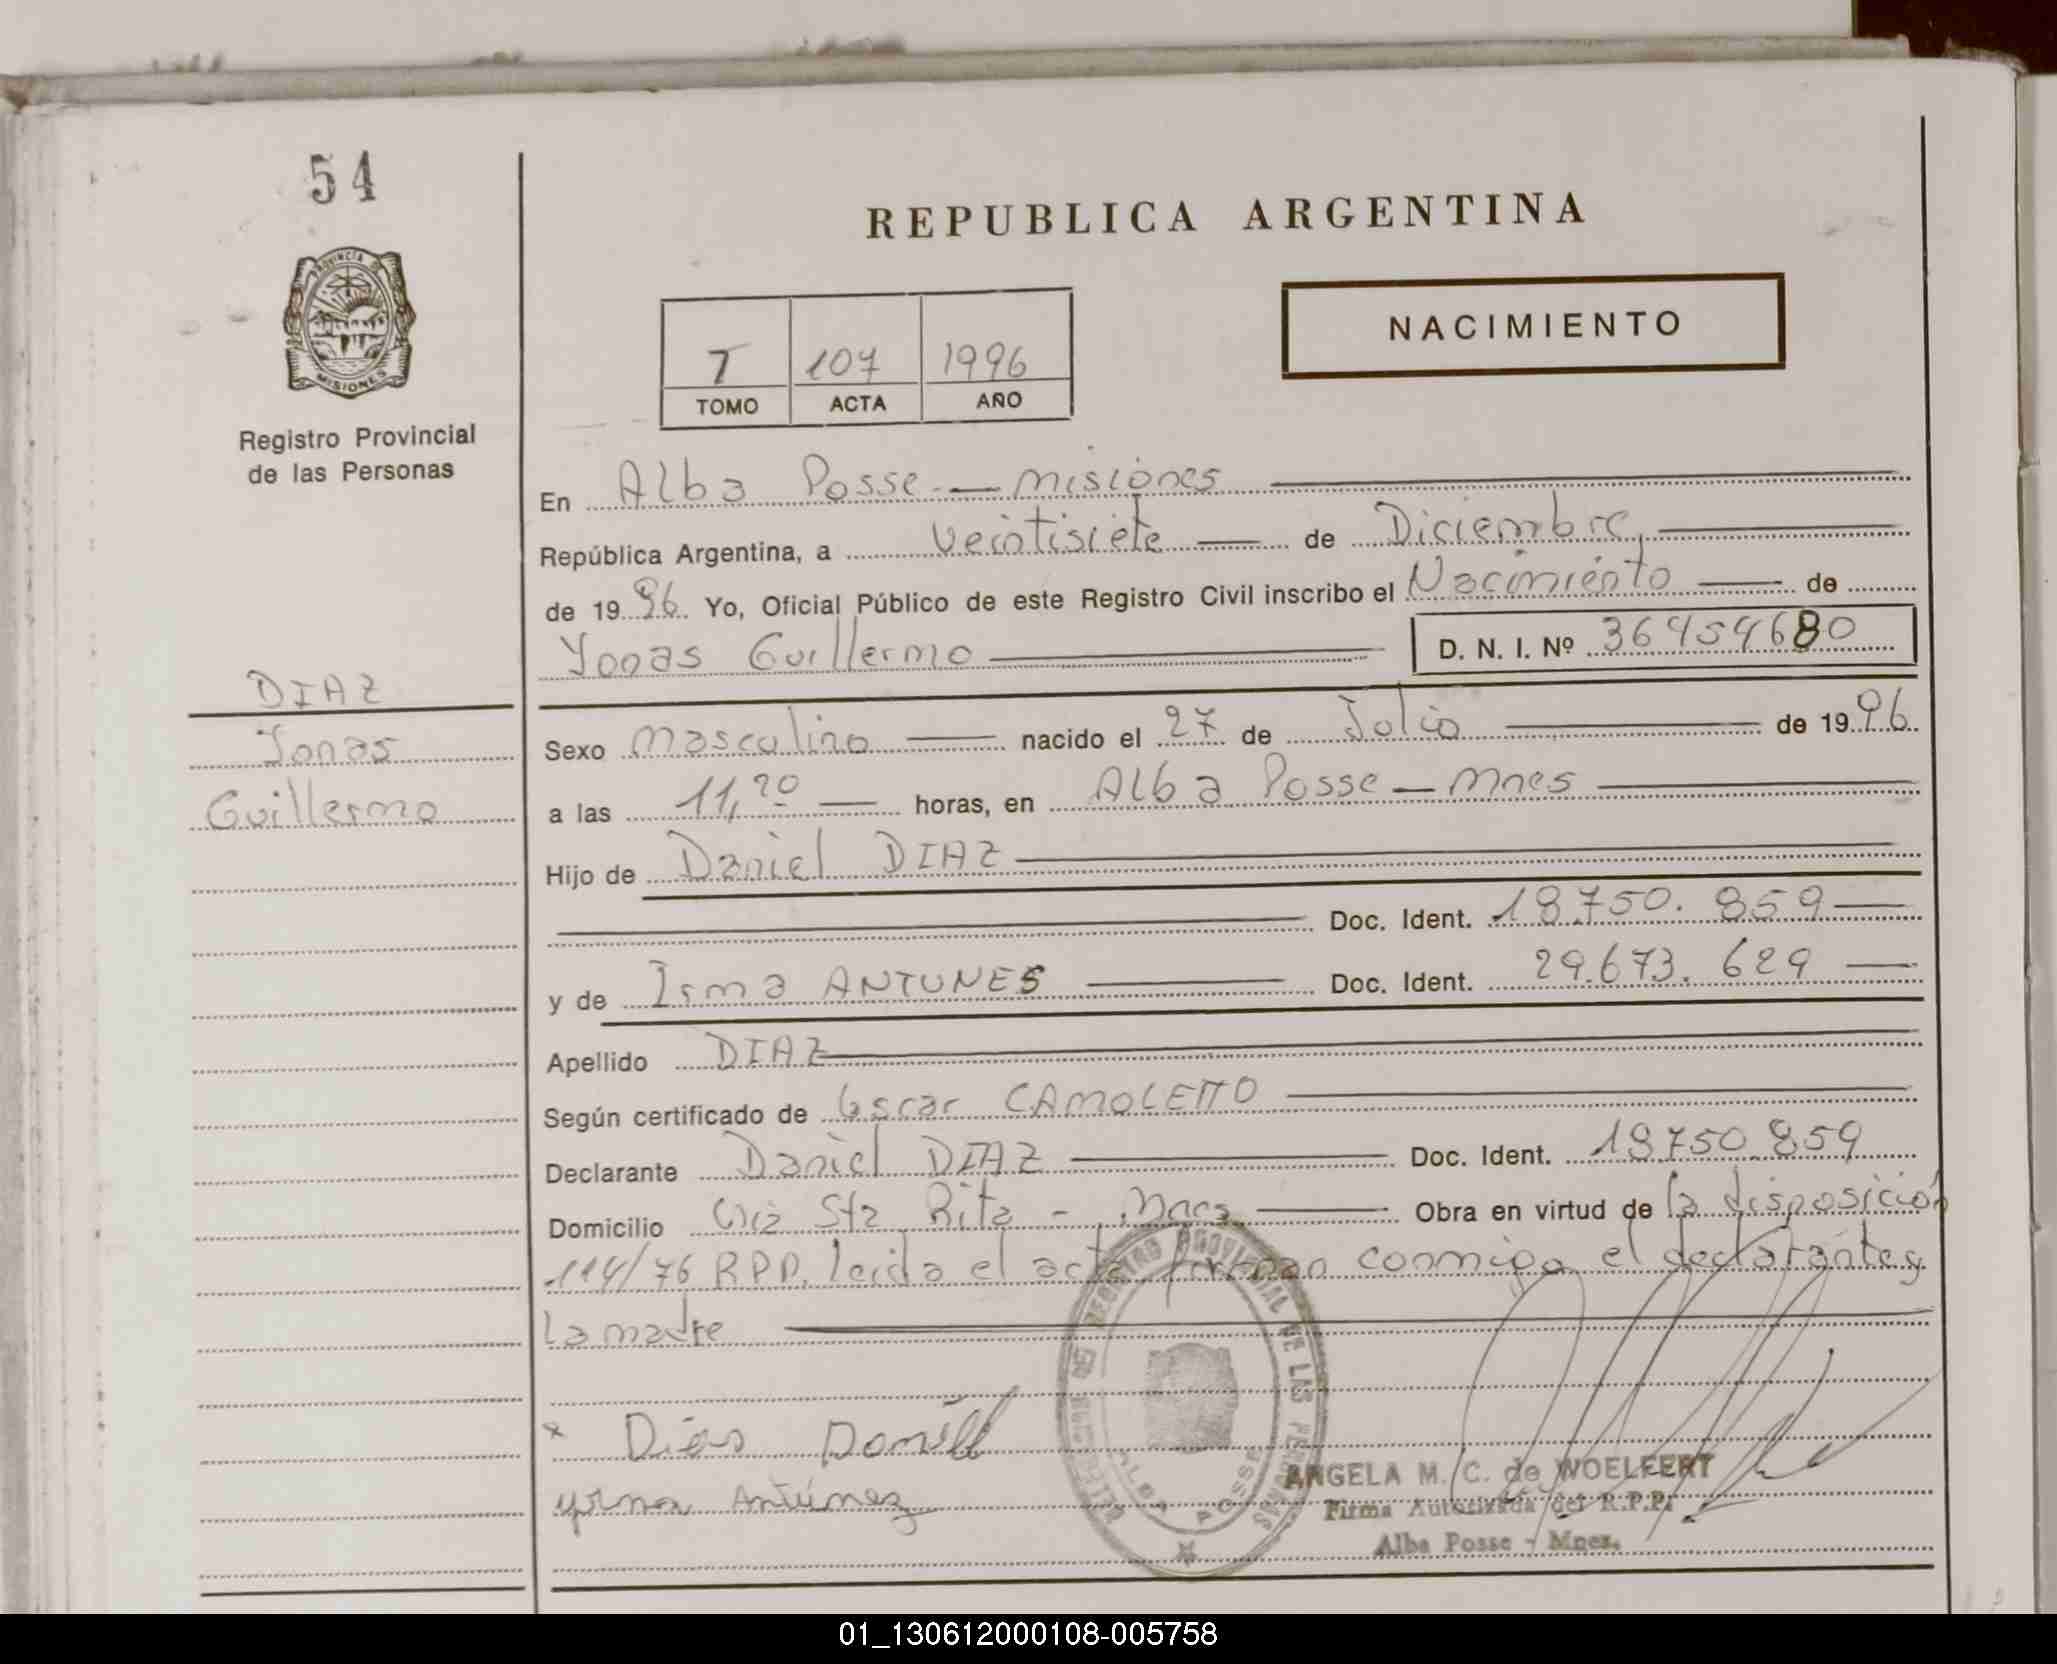 54
PROVINCIA DE
MISIONES
Registro Provincial
de las Personas
DIAZ
Jonas
Guillermo
REPUBLICA ARGENTINA
NACIMIENTO
T 107 1996
TOMO ACTA AÑO
En Alba Posse - Misiones
República Argentina, a veintisiete de Diciembre,
de 1996. Yo, Oficial Público de este Registro Civil inscribo el Nacimiento de
Yonas Guillermo D. N. I. Nº 36454680
Sexo Masculino nacido el 27 de Julio de 1996.
a las 11,20 horas, en Alba Posse - Mnes
Hijo de Daniel DIAZ
Doc. Ident. 18.750.859
y de Irma ANTUNES Doc. Ident. 29.673.629
Apellido DIAZ
Según certificado de Oscar CAMOLETTO
Declarante Daniel DIAZ Doc. Ident. 18.750.859
Domicilio Sta Rita - Mnes Obra en virtud de la disposición
114/76 RPP. leida el acta firman conmigo el declarante y
la madre
REGISTRO PROVINCIAL DE LAS PERSONAS
ALBA POSSE
x Dias Daniel
Antúnez
ANGELA M. C. de WOELFERT
Firma Autorizada del R.P.P.
Alba Posse - Mnes.
01_130612000108-005758